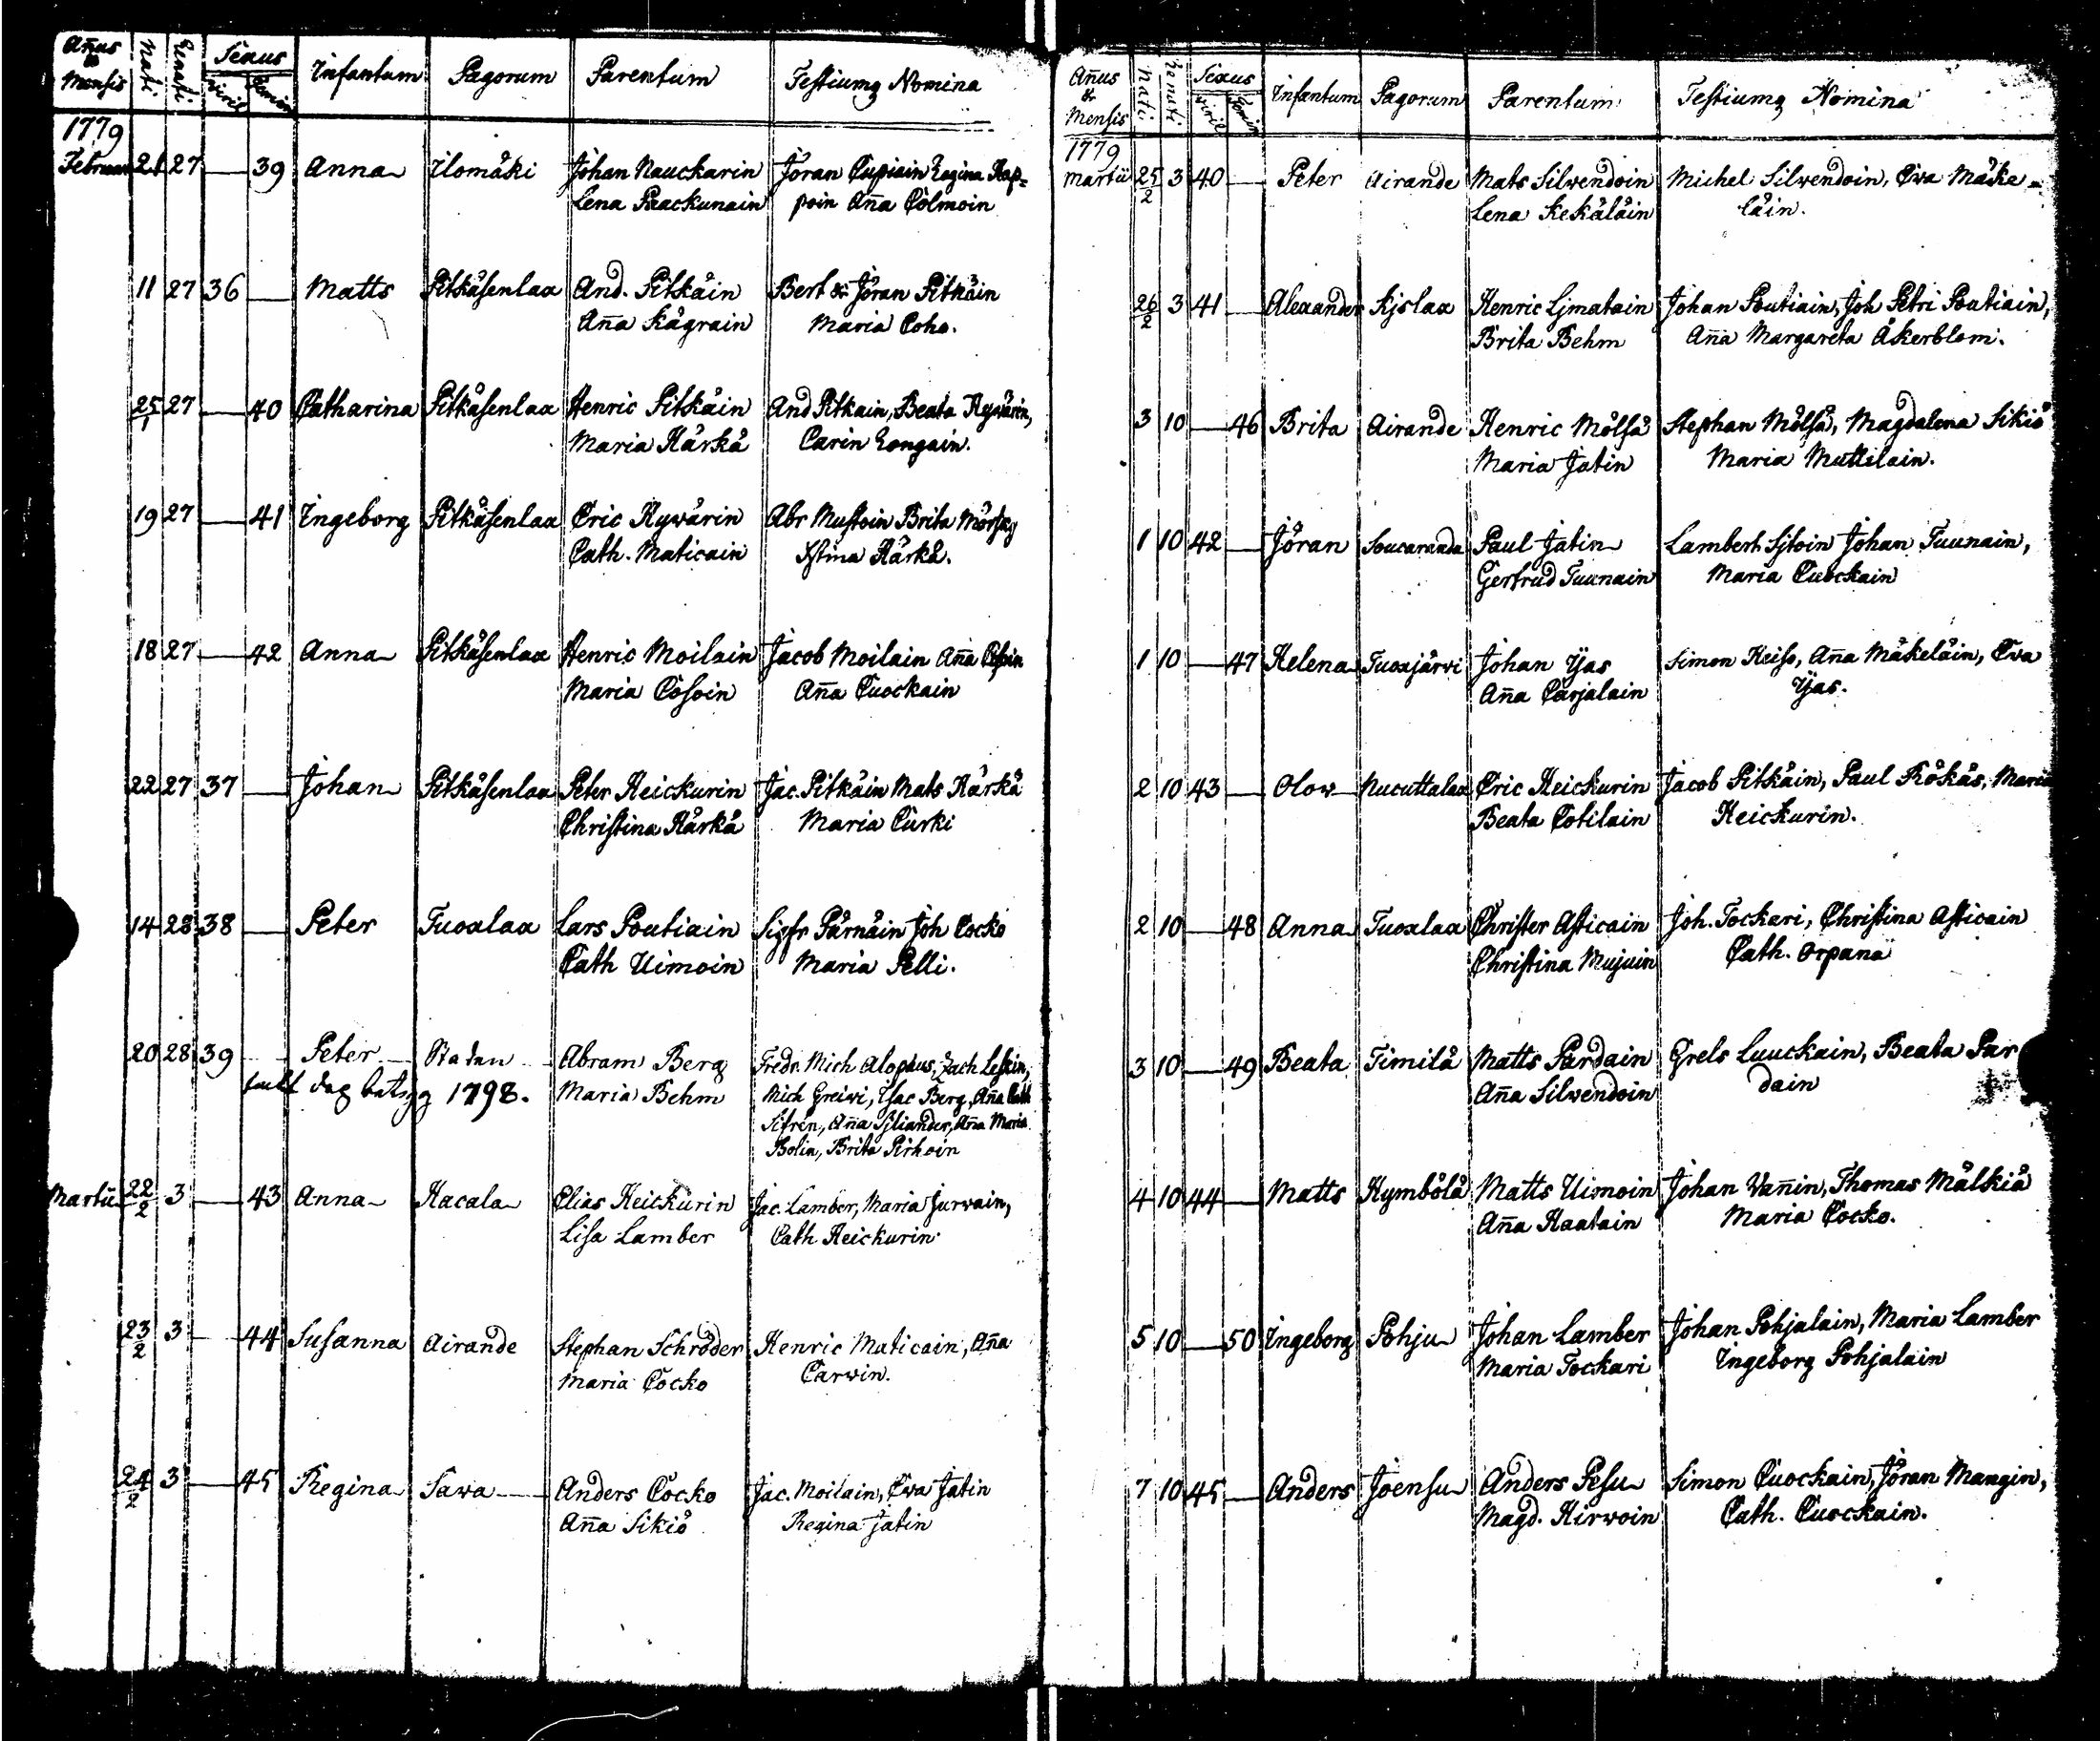 Añus & Mensis Nati Renati Sexus Viril Femin Infantum Pagorum Parentum Testiumq Nomina
1779
Februar 21 27 — 39 Anna Ilomäki Johan Nauckarin Jöran Cupiain Regina Kap-
Lena Paackunain poin Aña Colmoin
11 27 36 — Matts Pitkäsenlax And. Pitkäin Bert & Jöran Pitkäin
Aña Kägrain Maria Coho.
25/1 27 — 40 Catharina Pitkäsenlax Henric Pitkäin And Pitkain, Beata Hywärin,
Maria Härkä Carin Rongain.
19 27 — 41 Ingeborg Pitkäsenlax Eric Hywärin Abr Mustoin Brita Mörsky
Cath. Maticain Xstina Härkä.
18 27 — 42 Anna Pitkäsenlax Henric Moilain Jacob Moilain Aña
Maria Cosoin Aña Cuockain
22 27 37 — Johan Pitkäsenlax Peter Heickurin Jac. Pitkäin Mats Härkä
Christina Härkä Maria Curki
14 28 38 — Peter Tuoxlax Lars Poutiain Sigfr Pärnäin Joh Cocko
Cath Uimoin Maria Pelli.
20 28 39 — Peter Staden Abram Berg Fredr. Mich Alopæus, Zach Leskin,
1798. Maria Behm Mich Greiwi, Isac Berg, Aña Cath
Sitren, Aña Sjliander, Aña Maria
Bolin, Brita Pirhoin
Martii 22/2 3 — 43 Anna Hacala Elias Heickurin Jac. Lamber, Maria Jurwain,
Lisa Lamber Cath Heickurin.
23/2 3 — 44 Susanna Airande Stephan Schröder Henric Maticain, Aña
Maria Cocko Carwin.
24/2 3 — 45 Regina Sawa Anders Cocko Jac. Moilain, Ewa Jatin
Aña Sikiö Regina Jatin
Añus & Mensis Nati Renati Sexus Viril Femin Infantum Pagorum Parentum Testiumq Nomina
1779
Martii 25/2 3 40 — Peter Airande Mats Silwendoin Michel Silwendoin, Ewa Mäke-
Lena Kekäläin läin.
26/2 3 41 — Alexander Kjslax Henric Ljmatain Johan Poutiain, Joh Petri Poutiain,
Brita Behm Aña Margareta Åkerblom.
3 10 — 46 Brita Airande Henric Mölsä Stephan Mölsä, Magdalena Sikiö
Maria Jatin Maria Muttilain.
1 10 42 — Jöran Soucaranda Paul Jatin Lambert Sjtoin Johan Tuunain,
Gertrud Tuunain Maria Cuockain
1 10 — 47 Helena Tuoxjärwi Johan Yjas Simon Heiso, Aña Mäkeläin, Ewa
Aña Carjalain Yjas.
2 10 43 — Olow Nucuttalax Eric Heickurin Jacob Pitkäin, Paul Rökäs, Maria
Beata Cotilain Heickurin.
2 10 — 48 Anna Tuoxlax Christer Asticain Joh. Tockari, Christina Asticain
Christina Mujuin Cath. Orpana
3 10 — 49 Beata Timilä Matts Pardain Grels Luuckain, Beata Par
Aña Silwendoin dain
4 10 44 — Matts Kymbölä Matts Uimoin Johan Vañin, Thomas Mälkiä
Aña Haatain Maria Cocko.
5 10 — 50 Ingeborg Pohju Johan Lamber Johan Pohjalain, Maria Lamber
Maria Tockari Ingeborg Pohjalain
7 10 45 — Anders Joensu Anders Pesu Simon Cuockain, Jöran Mangin,
Magd. Hirwoin Cath. Cuockain.